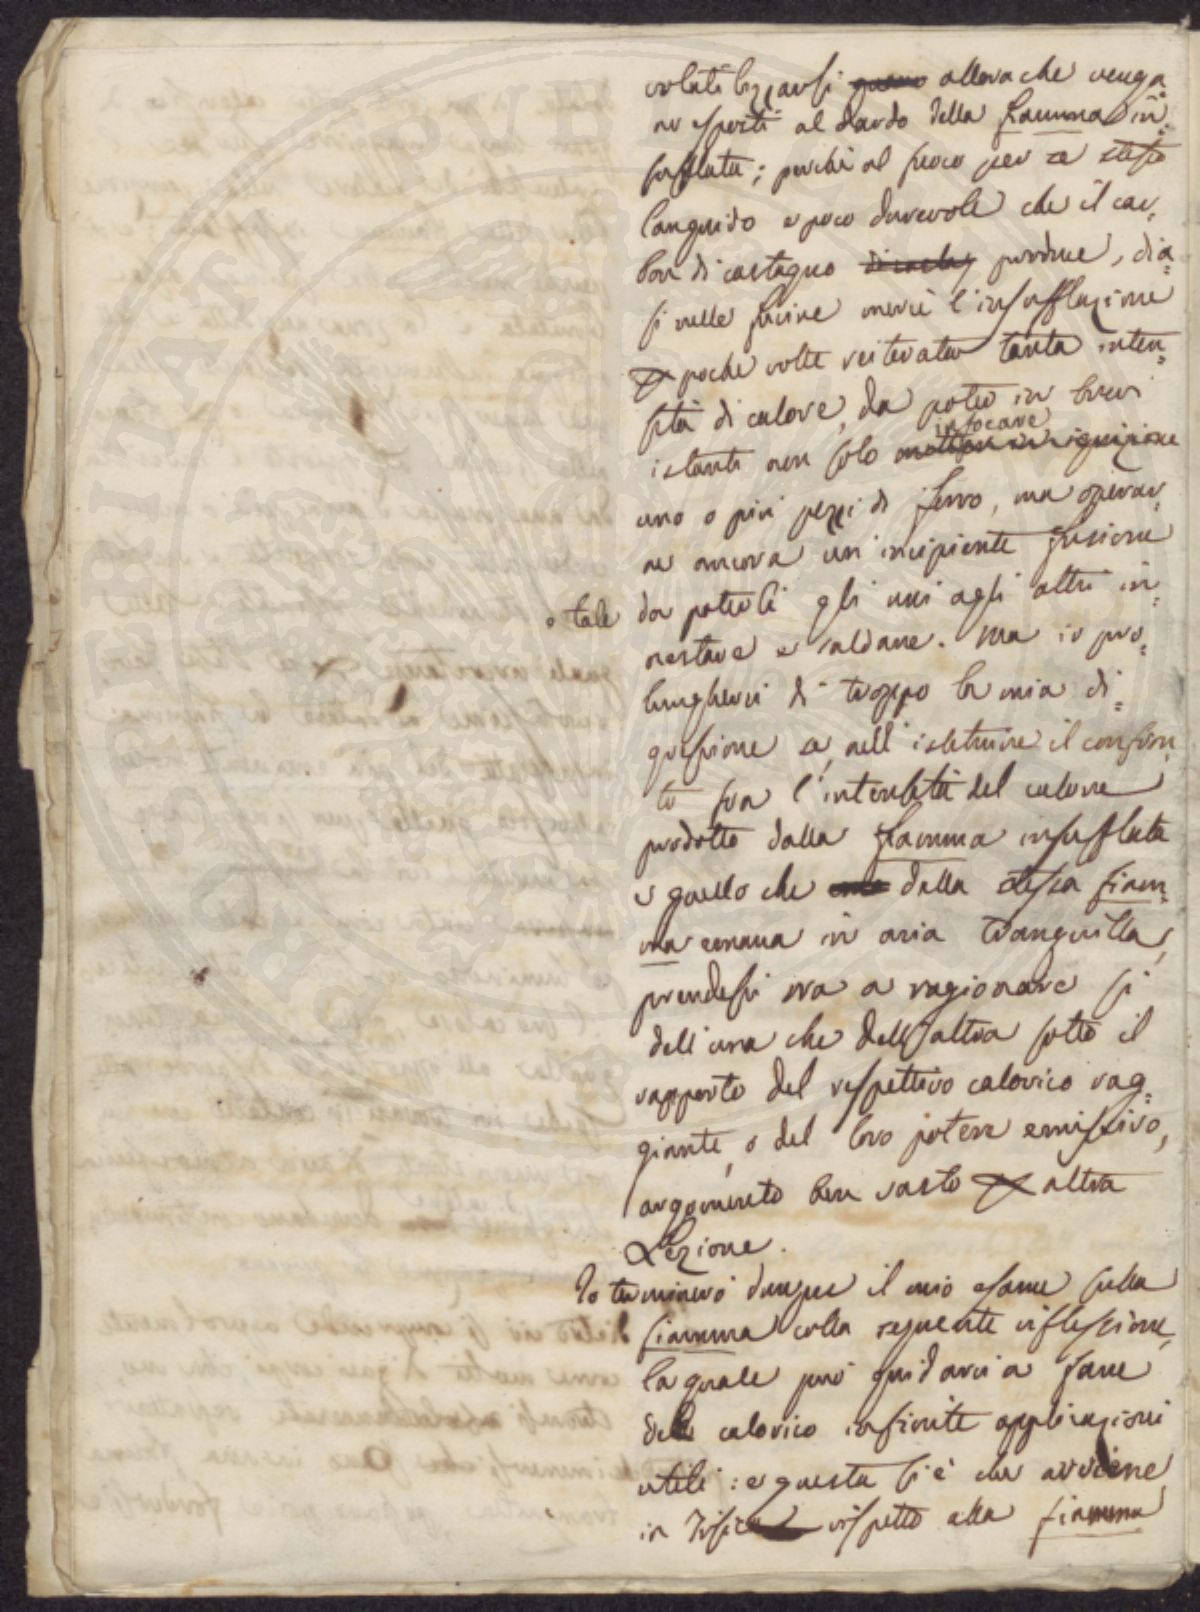 volatilizzarsi allorache venga
no esposti al dardo della fiamma in=
sufflata; perchè al fuoco per se stesso
languido e poco durevole che il car,
bon di castagno produce, dia
si nelle fucine mercè l'insufflazione
poche volte reiterata tanta inten=
sità di calore, da poter in brevi
infocare
istanti non solo mettere in ignizione
uno o più pezzi di ferro, ma operar,
ne ancora un'incipiente fusione
o tale da poterli gli uni agli altri in=
nestare e saldare. Ma io pro=
lungherei di troppo la mia di=
quisizione se, nell'istituire il confron
to fra l'intensità del calore
prodotto dalla fiamma insufflata
e quello che dalla stessa fiam=
ma emana in aria tranquilla,
prendessi ora a ragionare sì
dell'una che dell'altra sotto il
rapporto del rispettivo calorico rag=
giante, o del loro potere emissivo,
argomento ben vasto altra
Lezione.
Io terminerò dunque il mio esame sulla
fiamma colla seguente riflessione,
la quale può guidarci a fare
del calorico infinite applicazioni
utili: e questa si è che avviene
in Fisica rispetto alla fiamma